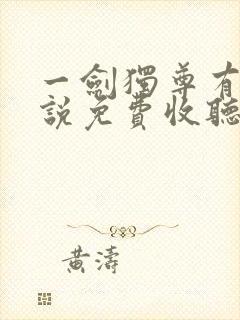 一劍獨尊有
說免費收聽
黃濤